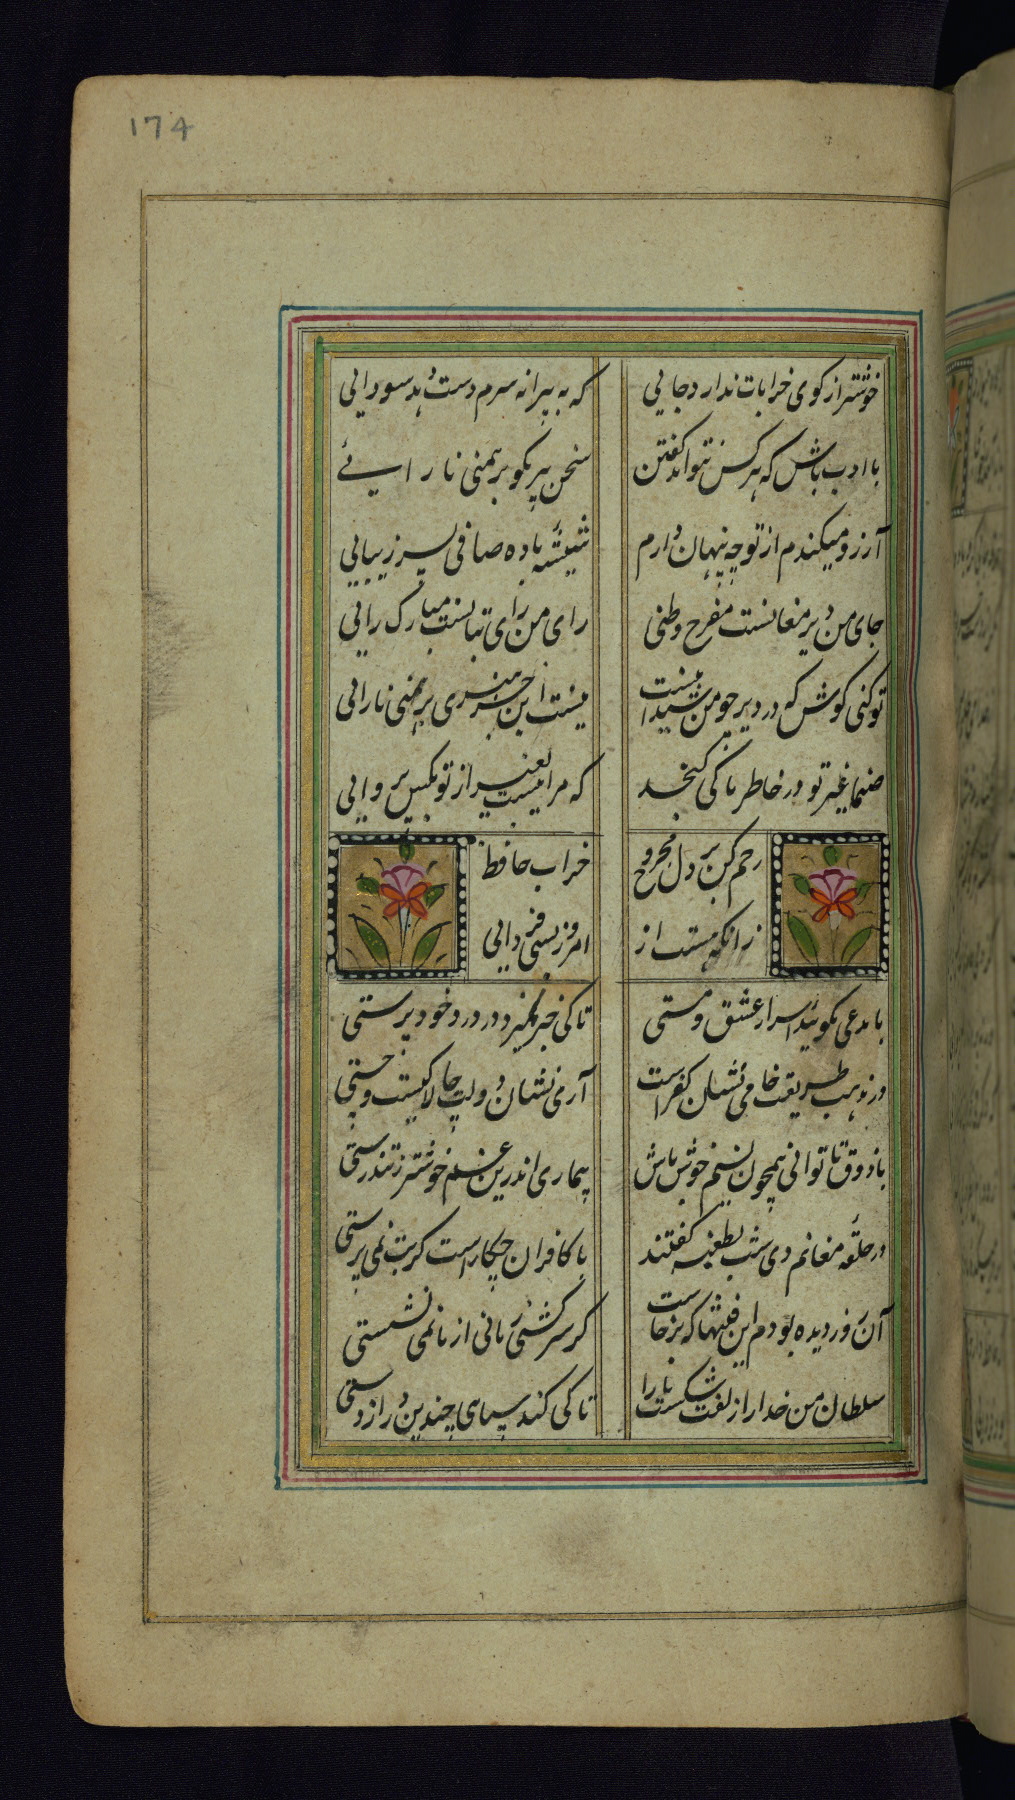 174
خوشتر از کوی خرابات ندارد جایی
که به پیرانه سرم دست دهد سودایی
با ادب باش که هر کس نتواند کفتن
سخن پیر مکو برهمنی نا رایئے
آرزو میکندم از تو چه پنهان دارم
شیشه باده صافی پسر زیبایی
جای من دیر مغانست مفرح وطنی
رای من رای بتانست مبارک رائی
تو کنی کوش که در دیر چو من شیدا نیست
نیست این جز هنری برهمنی نارائی
صنما غیر تو در خاطر ما کی کنجد
که مرا نیست بغیر از تو بکس پروایی
رحم کن بر دل مجروح
خراب حافظ
زانکه هست از
امروز پسی فردایی
با مدعی مکوئید اسرار عشق و مستی
تا کی خبر نمیرد در درد خود پرستی
در مذهب طریقت خامی نشان کفر است
آری نشان دولت چالاکیست و چستی
با ذوق تا توانی همچون نسیم خوش باش
بیماری اندرین غم خوشتر ز تندرستی
در حلقه مغانم دی شب بطعنه کفتند
با کافران چکار است کر بت نمی پرستی
آن روز دیده بودم این فتنها که برخاست
کر سرکشی زمانی از ما نمی نشستی
سلطان من خدا را زلفت شکست ما را
تا کی کند سیاهی چندین دراز دستی